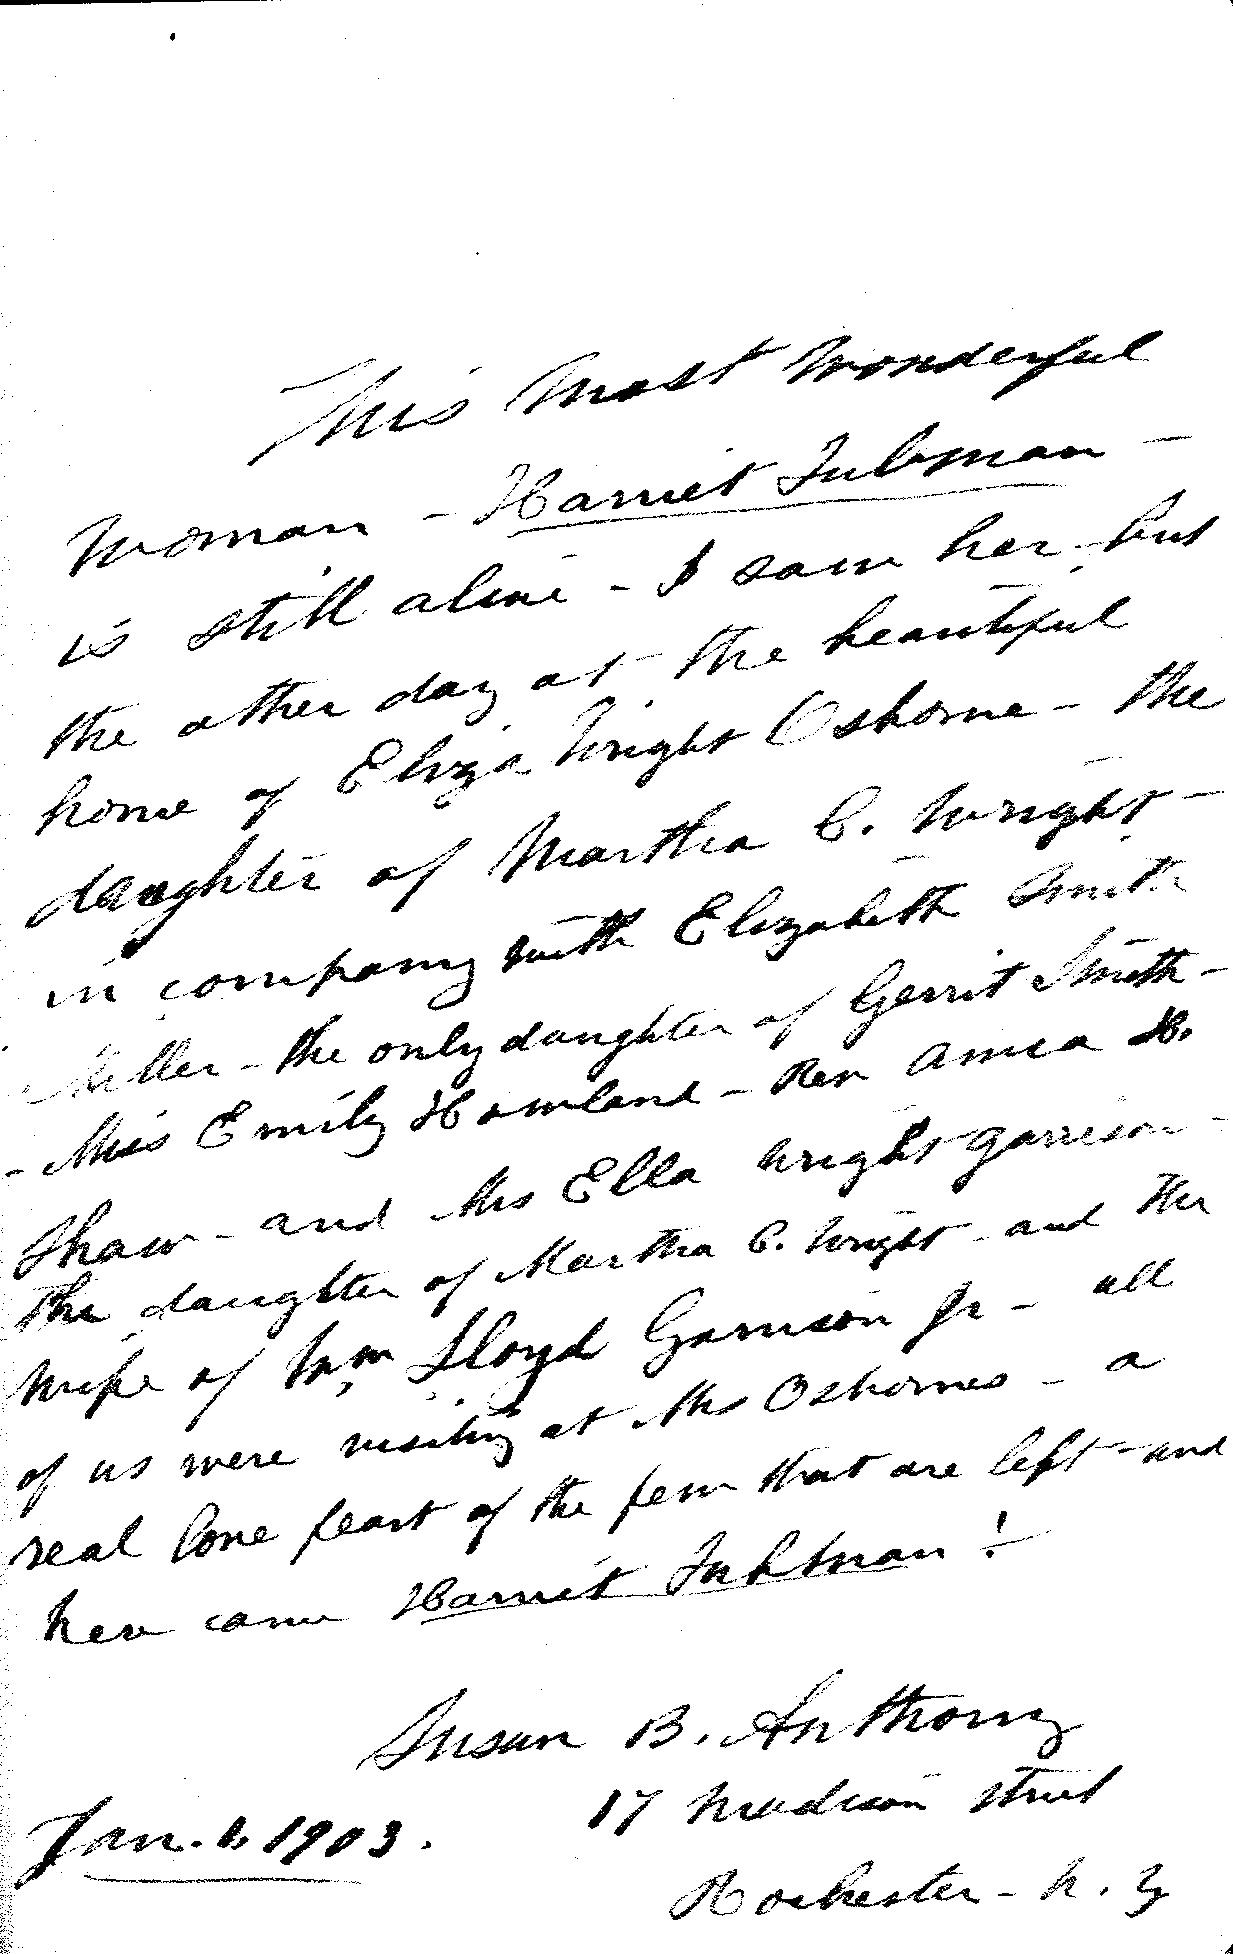 This most wonderful
woman - Harriet Tubman -
is still alive - I saw her but
the other day at the beautiful
home of Eliza Wright Osborne - the
daughter of Martha C. Wright -
in company with Elizabeth Smith
Miller - the only daughter of Gerrit Smith -
- Miss Emily Howland - Rev Anna H.
Shaw - and Mrs Ella Wright Garrison -
the daughter of Martha C. Wright - and the
wife of Wm Lloyd Garrison Jr - all
of us were visiting at Mrs Osbornes - a
real love feast of the few that are left - and
here came Harriet Tubman! -
Susan B. Anthony
17 Madison street
Jan. 1, 1903.
Rochester - N. Y